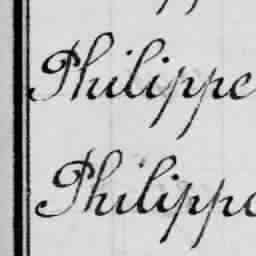 Philippe
Philippe